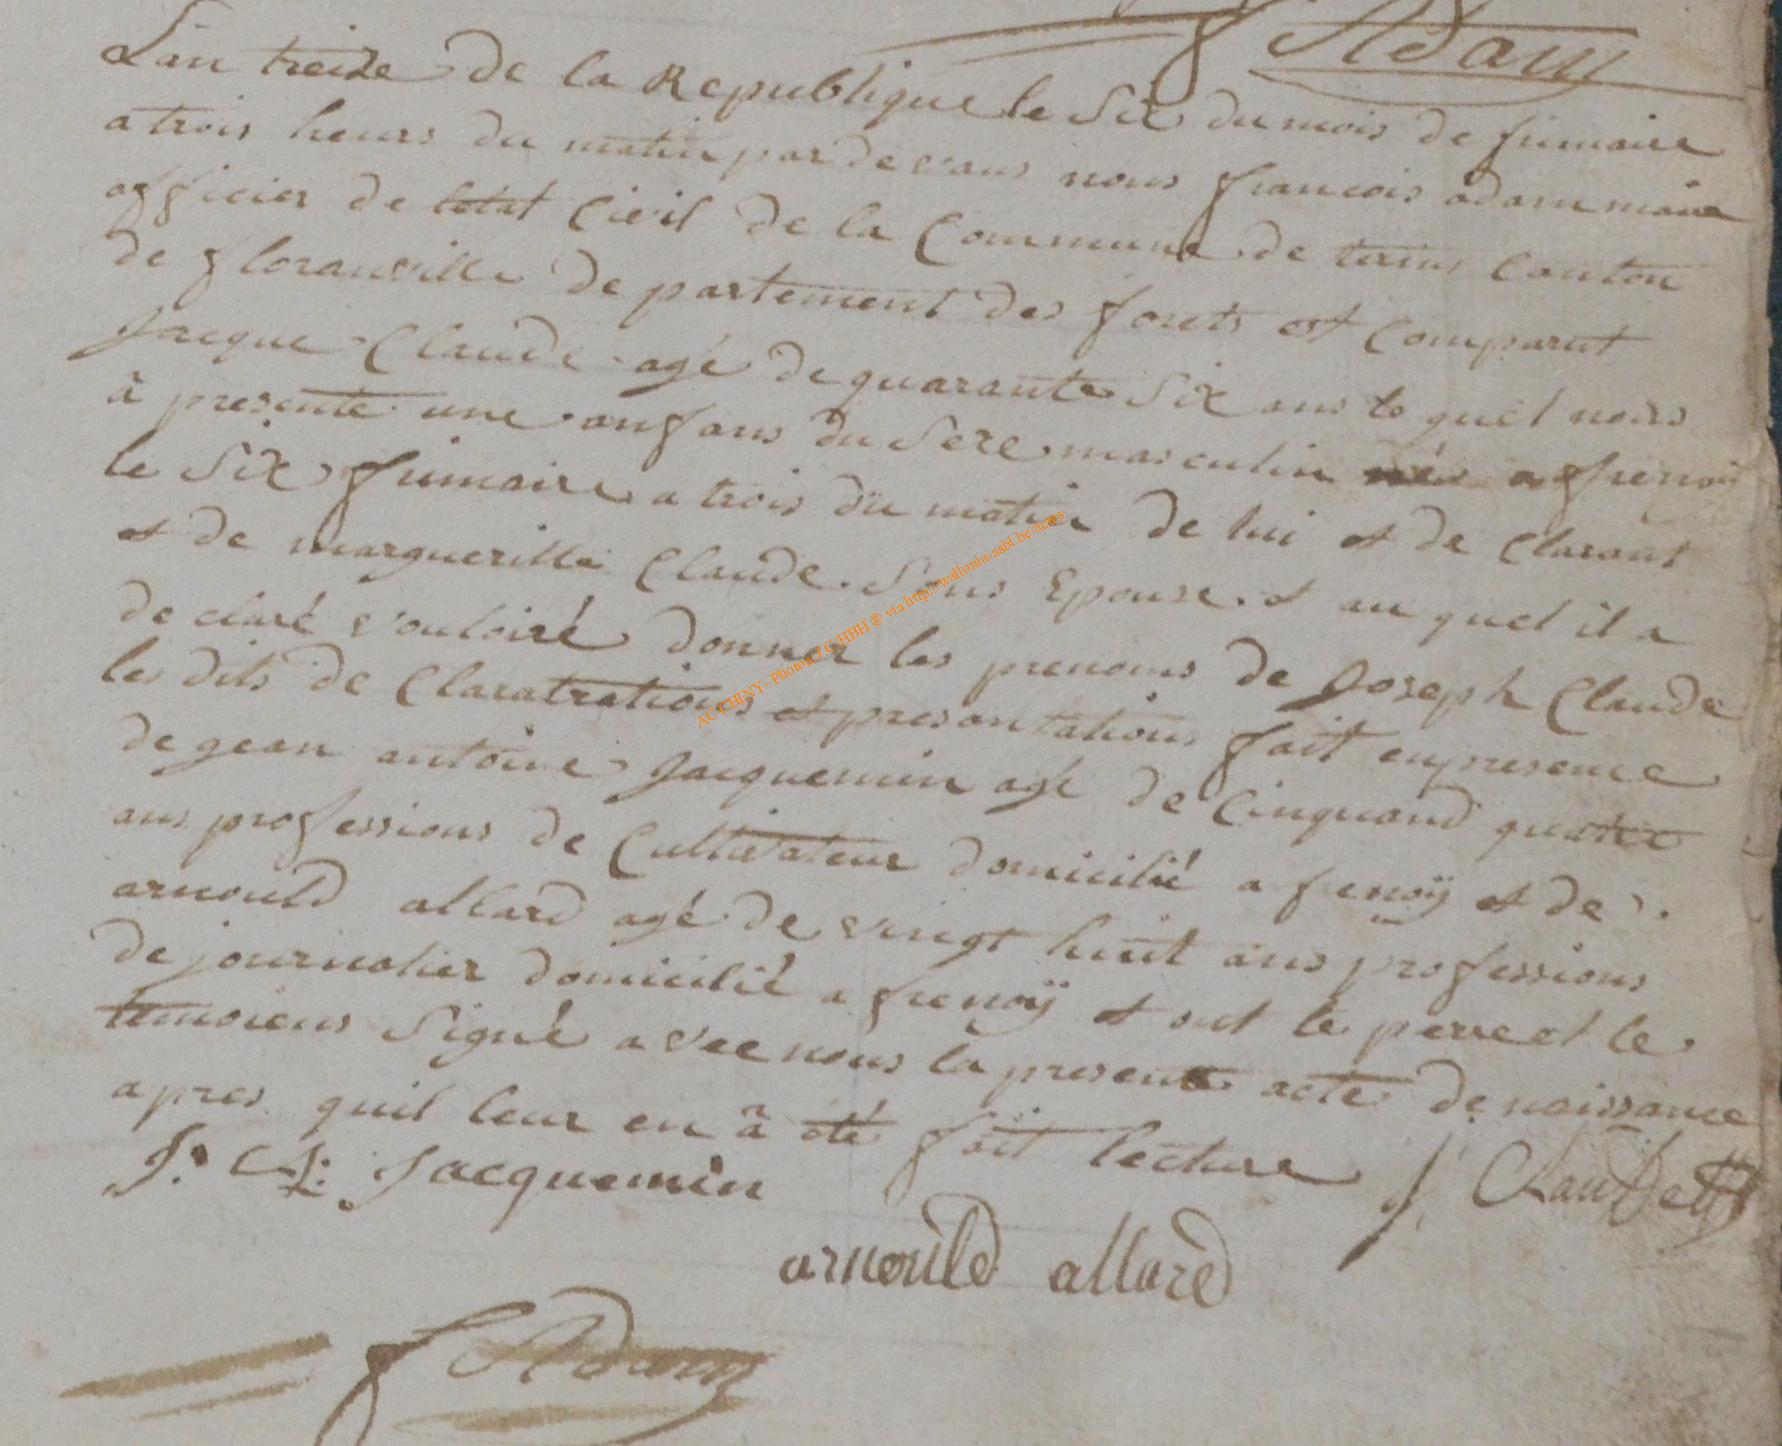 f Adam
L'an treize de la Republique le Six du mois de frimaire
a trois heurs du matin par devans nous francois adam maire
officier de letat Civil de la Commune de termes Canton
de floranville departement des forets est Comparut
Jacque Claude agé de quarante Six ans le quel nous
à presente une anfans du Sexe masculin nés a frenoÿ
le Six frimaire a trois du matin de lui et de Clarant
et de marguerille Claude Sons Epouse et au quel il a
de claré vouloiré donner les prenoms de Joseph Claude
les dits de Claratrations et presantations fait enpresence
de gean antoine Jacquemin agé de Cinquand quatre
ans professions de Cultivateur domicilié a frenoÿ et de
arnould allard agé de vingt huit ans professions
de journalier domicilié a frenoÿ et ont le perre et le
temoiens Signé avec nous la presente acte de naissance
apres quil leur en à été fait lecture J Claude
J: A: Jacquemin
arnould allard
f Adam
AC CHINY - Photos J.C. HBH ® via http://wallonia-asbl.be/actes